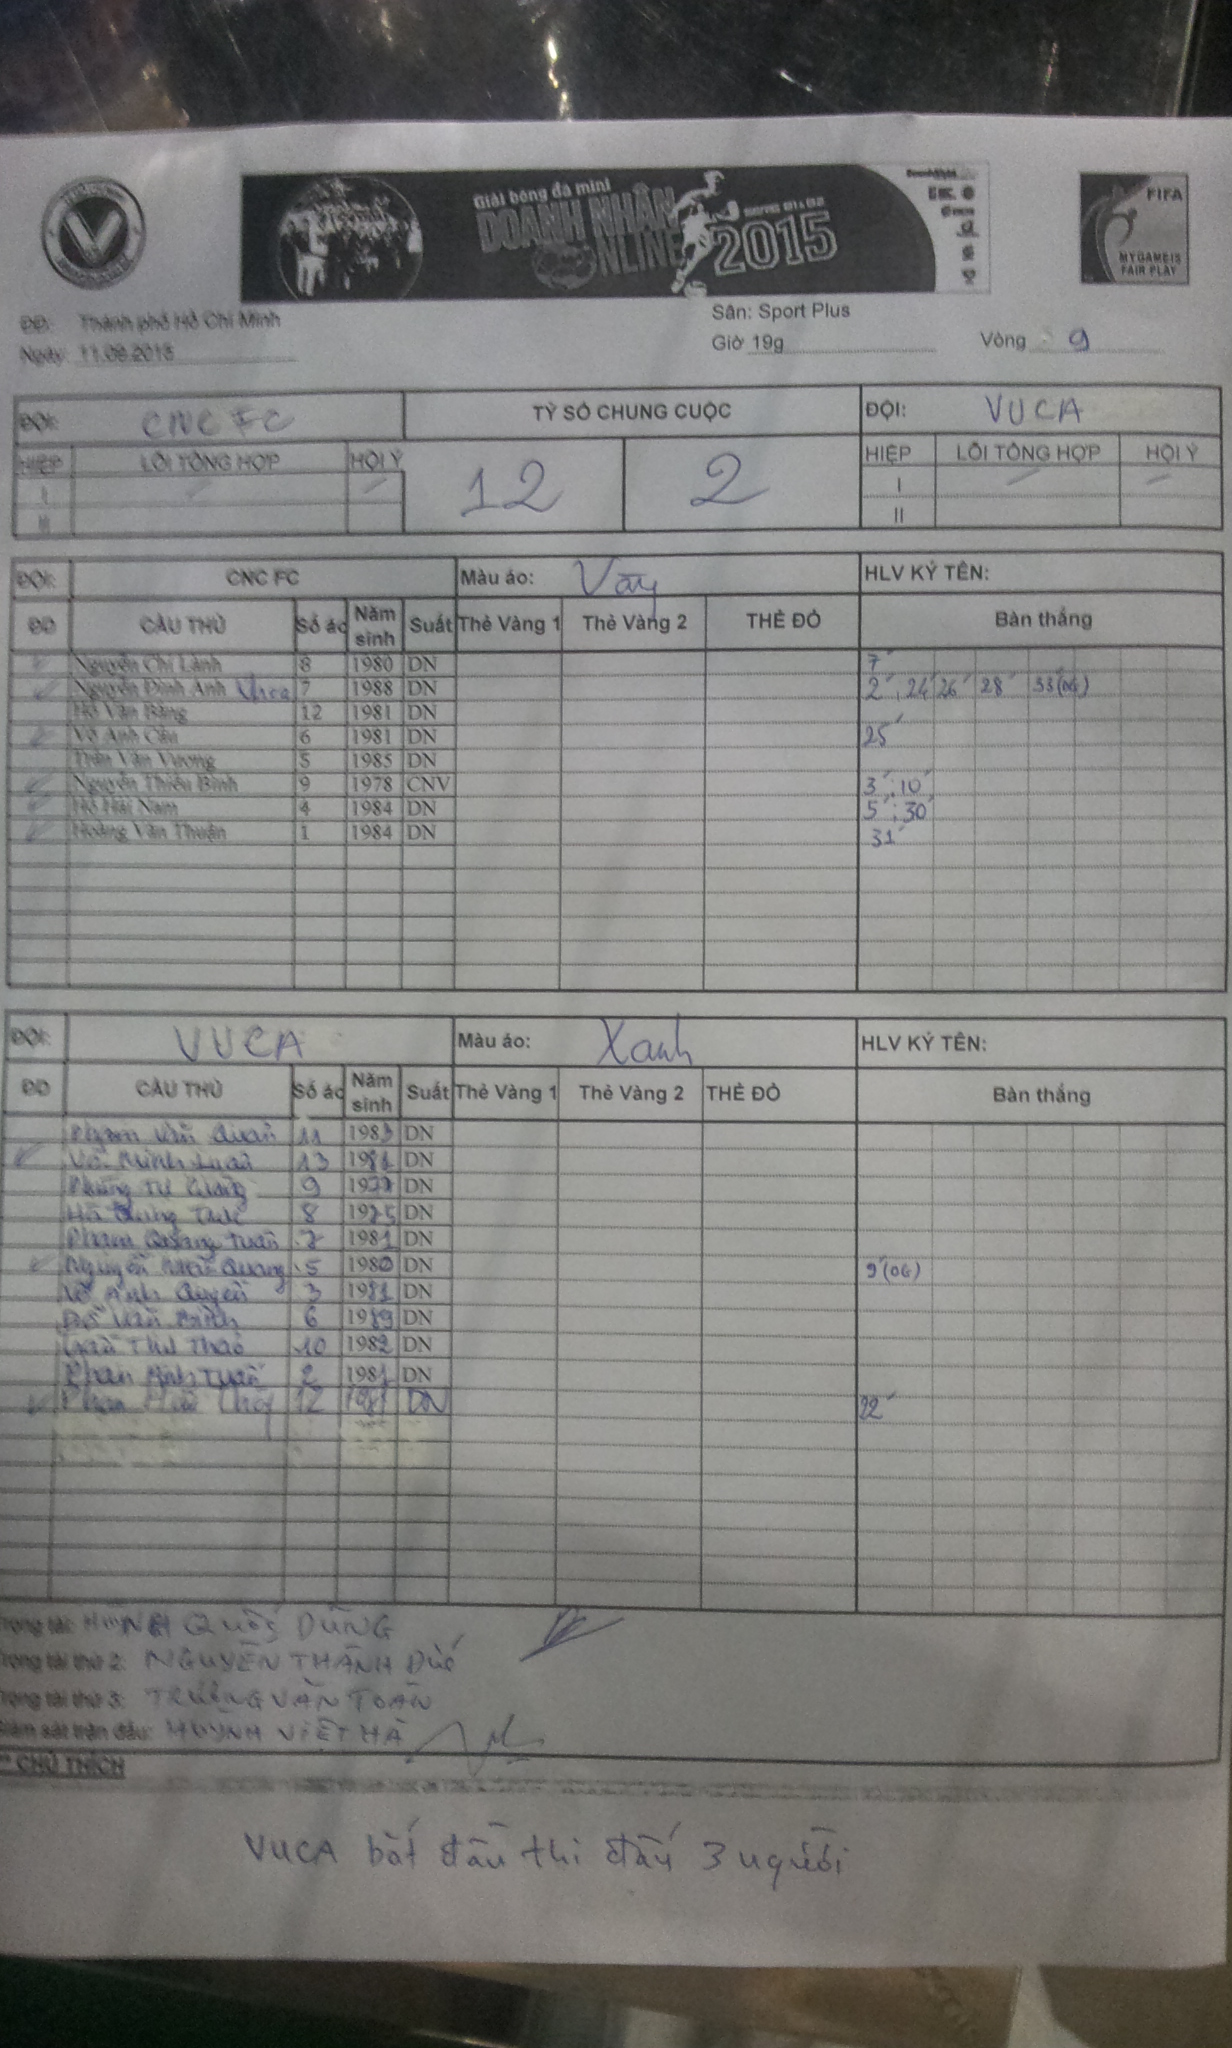 Giải bóng đá mini
DOANH NHÂN
NLINE
2015
FIFA
MY GAME IS
FAIR PLAY
ĐĐ: Thành phố Hồ Chí Minh
Sân: Sport Plus
Ngày: 11.09.2015
Giờ 19g
Vòng 9
ĐỘI: CNC FC
TỶ SỐ CHUNG CUỘC
ĐỘI: VUCA
HIỆP LỖI TỔNG HỢP HỘI Ý
12 2
HIỆP LỖI TỔNG HỢP HỘI Ý
I
II
I
II
ĐỘI: CNC FC Màu áo: HLV KÝ TÊN:
ĐD CẦU THỦ Số áo Năm sinh Suất Thẻ Vàng 1 Thẻ Vàng 2 THẺ ĐỎ Bàn thắng
Nguyễn Chí Lành 8 1980 DN 7'
Nguyễn Đình Anh 7 1988 DN 2' 24' 26' 28' 33'(OG)
Hồ Văn Bằng 12 1981 DN
Võ Anh Cầu 6 1981 DN 25'
Trần Văn Vương 5 1985 DN
Nguyễn Thiều Bình 9 1978 CNV 3'; 10'
Hồ Hải Nam 4 1984 DN 5'; 30'
Hoàng Văn Thuận 1 1984 DN 31'
ĐỘI: VUCA Màu áo: Xanh HLV KÝ TÊN:
ĐD CẦU THỦ Số áo Năm sinh Suất Thẻ Vàng 1 Thẻ Vàng 2 THẺ ĐỎ Bàn thắng
Phạm Văn Quân 11 1983 DN
Võ Minh 13 1981 DN
9 DN
8 1975 DN
Phạm Quang Tuấn 7 1981 DN
Nguyễn Quang 5 1980 DN 9'(OG)
Võ Anh Quyền 3 1981 DN
Đỗ Văn 6 1989 DN
Thảo 10 1982 DN
Phan Minh Tuấn 2 1981 DN
12 DN 22'
Trọng tài: HUỲNH QUỐC DŨNG
Trọng tài thứ 2: NGUYỄN THÀNH ĐỨC
Trọng tài thứ 3: TRƯƠNG VĂN TOÀN
Giám sát trận đấu: HUỲNH VIỆT HÀ
** CHÚ THÍCH
VUCA bắt đầu thi đấu 3 người